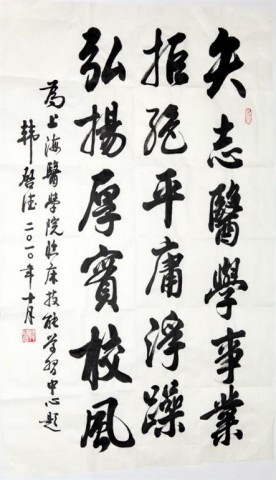 矢志醫學事業
拒絕平庸浮躁
弘揚厚實校風
為上海醫學院臨床技能學習中心題
韩启德 二〇一〇年十月